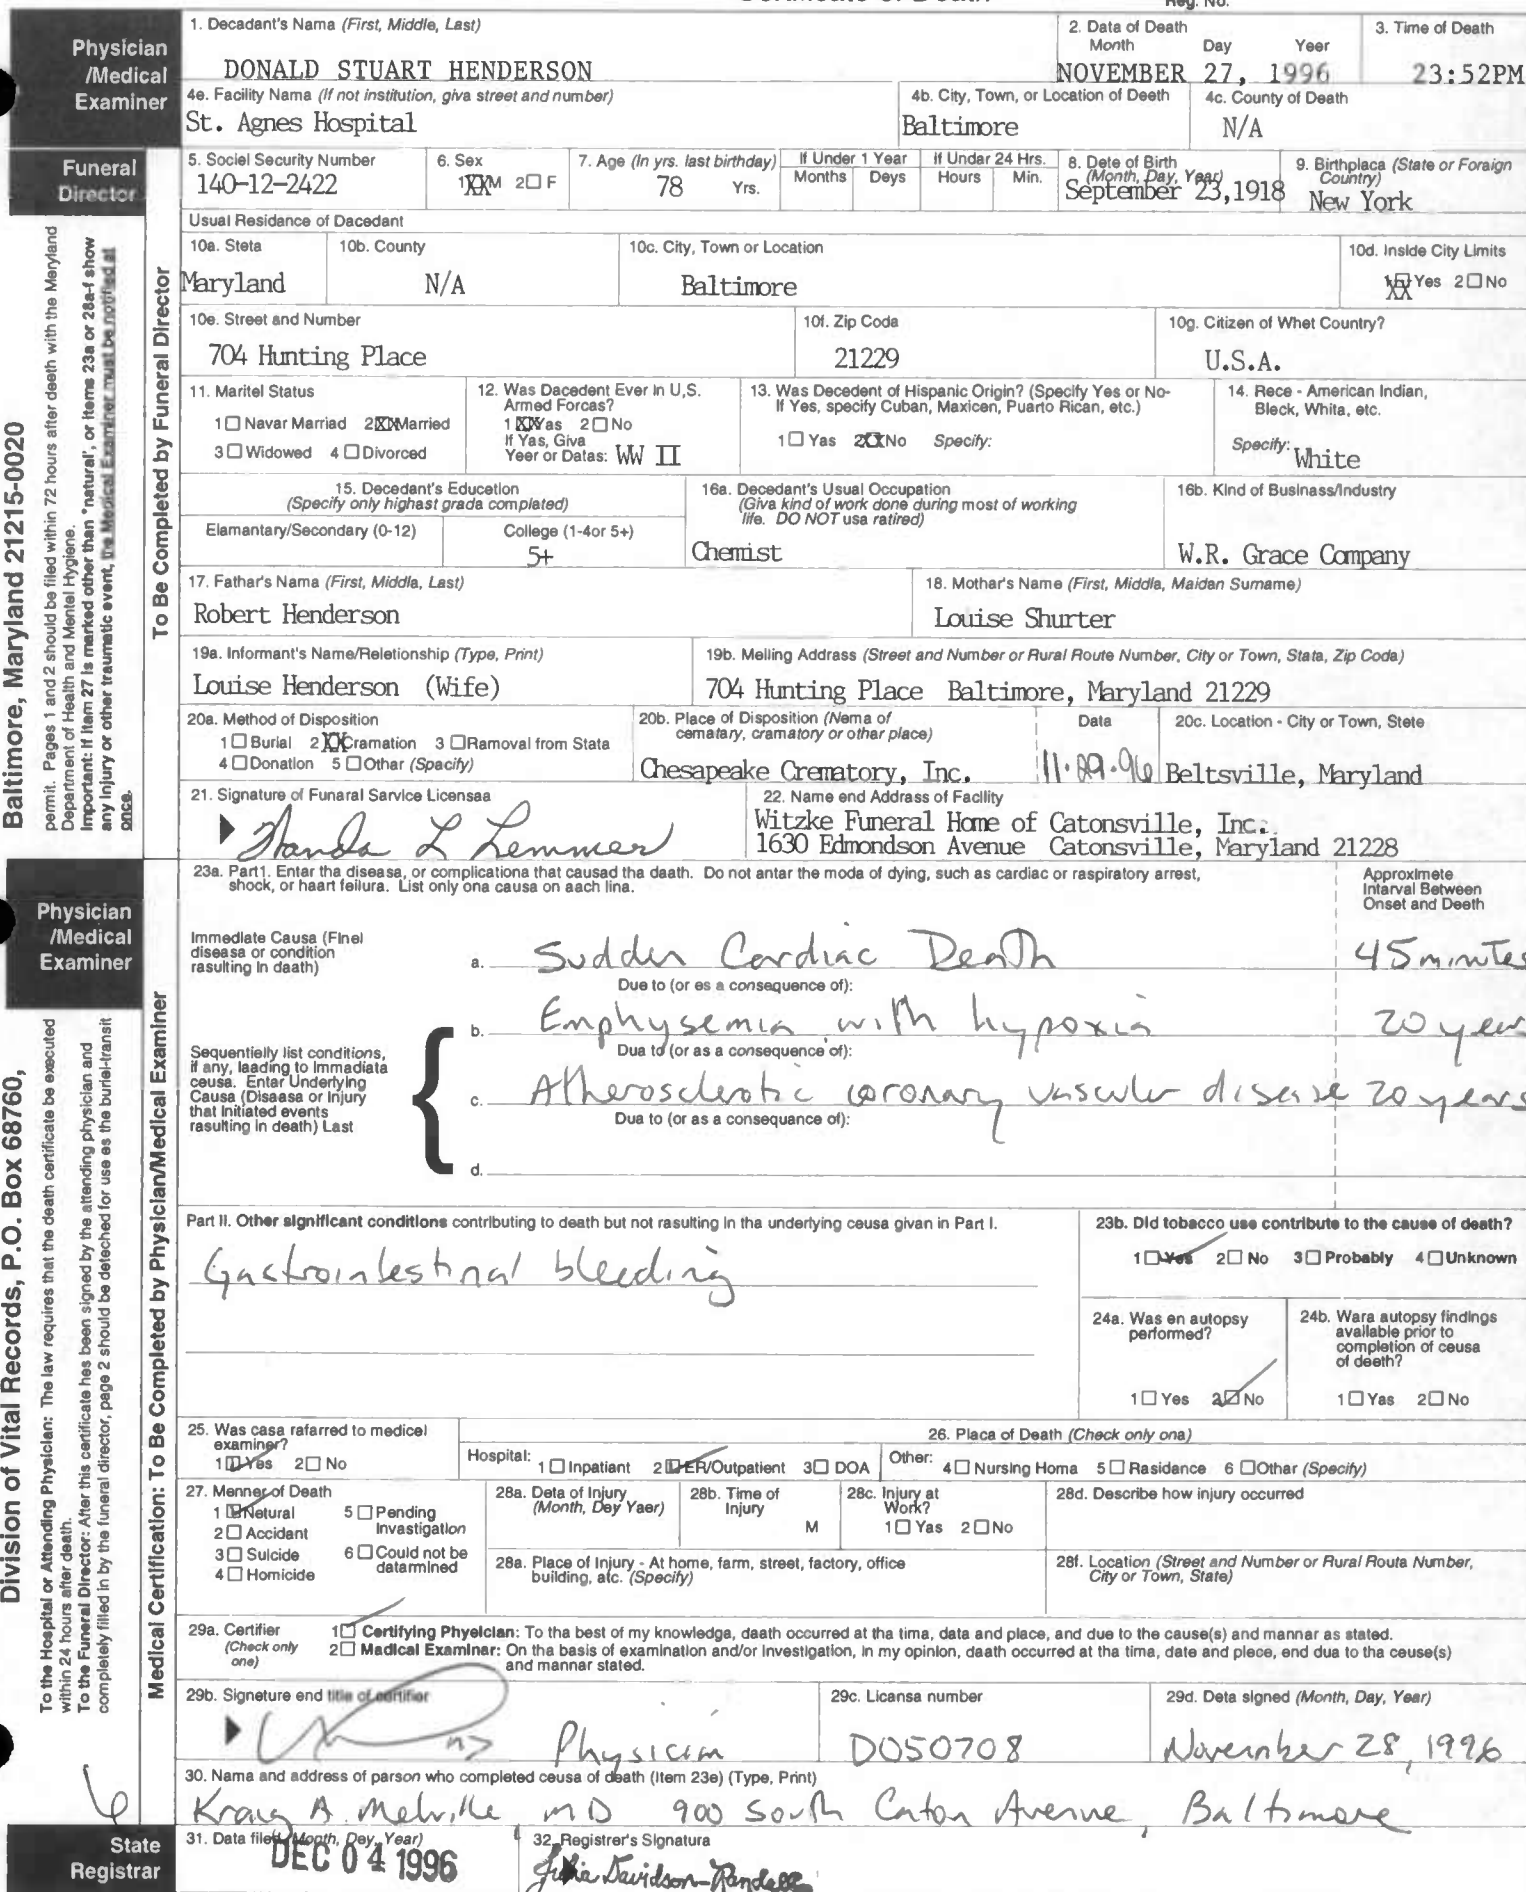 Reg. No.
Physician
/Medical
Examiner
1. Decadant's Name (First, Middle, Last)
DONALD STUART HENDERSON
2. Data of Death
Month Day Yeer
NOVEMBER 27, 1996
3. Time of Death
23:52PM
4e. Facility Name (If not institution, giva street and number)
St. Agnes Hospital
4b. City, Town, or Location of Deeth
Baltimore
4c. County of Death
N/A
Funeral
Director
5. Sociel Security Number
140-12-2422
6. Sex
1☒M 2☐ F
7. Age (In yrs. last birthday)
78 Yrs.
If Under 1 Year
Months Deys
If Undar 24 Hrs.
Hours Min.
8. Dete of Birth
(Month, Day, Year)
September 23,1918
9. Birthplaca (State or Foraign
Country)
New York
Usual Residence of Dacedant
10a. Steta
Maryland
10b. County
N/A
10c. City, Town or Location
Baltimore
10d. Inside City Limits
1☒ Yes 2☐ No
10e. Street and Number
704 Hunting Place
10f. Zip Coda
21229
10g. Citizen of Whet Country?
U.S.A.
11. Maritel Status
1☐ Navar Marriad 2☒Married
3☐ Widowed 4☐ Divorced
12. Was Dacedent Ever in U,S.
Armed Forcas?
1☒Yas 2☐ No
If Yas, Giva
Yeer or Datas: WW II
13. Was Decedent of Hispanic Origin? (Specify Yes or No-
If Yes, specify Cuban, Maxicen, Puarto Rican, etc.)
1☐ Yas 2☒No Specify:
14. Rece - American Indian,
Bleck, Whita, etc.
Specify: White
15. Decedant's Education
(Specify only highast grada complated)
Elamantary/Secondary (0-12)
College (1-4or 5+)
5+
16a. Decedant's Usual Occupation
(Giva kind of work done during most of working
life. DO NOT usa ratired)
Chemist
16b. Kind of Businass/Industry
W.R. Grace Company
17. Fathar's Name (First, Middla, Last)
Robert Henderson
18. Mothar's Name (First, Middla, Maidan Surname)
Louise Shurter
19a. Informant's Name/Reletionship (Type, Print)
Louise Henderson (Wife)
19b. Melling Address (Street and Number or Rural Route Number, City or Town, Stata, Zip Coda)
704 Hunting Place Baltimore, Maryland 21229
20a. Method of Disposition
1☐ Burial 2☒Cramation 3☐Ramoval from Stata
4☐ Donation 5☐ Othar (Spacify)
20b. Place of Disposition (Nema of
cematary, cramatory or othar place)
Chesapeake Crematory, Inc.
Data
11.29.96
20c. Location - City or Town, Stete
Beltsville, Maryland
21. Signature of Funaral Sarvice Licensaa
Wanda L Lemmer
22. Name end Addrass of Facility
Witzke Funeral Home of Catonsville, Inc.
1630 Edmondson Avenue Catonsville, Maryland 21228
To Be Completed by Funeral Director
Baltimore, Maryland 21215-0020
permit. Pages 1 and 2 should be filed within 72 hours after deeth with the Meryland
Department of Health and Mentel Hygiene.
Important: If Item 27 is marked other than "natural", or Items 23a or 28a-f show
any Injury or other traumatic event, the Medical Examiner must be notified at
once.
Physician
/Medical
Examiner
23a. Part1. Entar tha disease, or complicationa that causad tha daath. Do not antar the moda of dying, such as cardiac or raspiratory arrest,
shock, or haart feilura. List only ona causa on aach lina.
Approximete
Intarval Between
Onset and Deeth
Immediate Causa (Finel
disease or condition
rasulting In daath)
a. Sudden Cardiac Death 45 minutes
Due to (or es a consequence of):
b. Emphysemia with hypoxia 20 years
Dua to (or as a consequence of):
Sequentielly list conditions,
if any, laading to Immadiata
ceusa. Enter Underlying
Causa (Disaasa or Injury
that Initiated events
rasulting in death) Last
c. Atherosclerotic coronary vascular disease 20 years
Dua to (or as a consequance of):
d.
Part II. Other significant conditions contributing to death but not rasulting In tha underlying ceusa givan in Part I.
Gastrointestinal bleeding
23b. Did tobacco use contribute to the cause of death?
1☑ Yes 2☐ No 3☐ Probably 4☐ Unknown
24a. Was en autopsy
performed?
1☐ Yes 2☑ No
24b. Wara autopsy findings
available prior to
completion of ceusa
of death?
1☐ Yas 2☐ No
25. Was casa rafarred to medicel
examiner?
1☑ Yes 2☐ No
26. Placa of Death (Check only ona)
Hospital: 1☐ Inpatient 2☑ ER/Outpatient 3☐ DOA
Other: 4☐ Nursing Homa 5☐ Rasidance 6☐Othar (Specify)
27. Menner of Death
1☑ Netural 5☐ Pending
Invastigation
2☐ Accidant
3☐ Sulcide 6☐ Could not be
datarmined
4☐ Homicide
28a. Deta of Injury
(Month, Dey Yaer)
28b. Time of
Injury
M
28c. Injury at
Work?
1☐ Yas 2☐ No
28d. Describe how injury occurred
28a. Place of Injury - At home, farm, street, factory, office
building, atc. (Specify)
28f. Location (Street and Number or Rural Routa Number,
City or Town, State)
29a. Certifier
(Check only
one)
1☑ Certifying Phyeician: To tha best of my knowledga, daath occurred at tha tima, data and placa, and due to the cause(s) and mannar as stated.
2☐ Madical Examinar: On tha basis of examination and/or Investigation, in my opinion, daath occurred at tha tima, date and plece, end dua to tha ceuse(s)
and mannar stated.
29b. Signeture end title of certifier
Physician
29c. Licansa number
D050708
29d. Deta signed (Month, Day, Year)
November 28, 1996
30. Name and address of parson who completed ceusa of death (Item 23e) (Type, Print)
Kraig A. Melville MD 900 South Caton Avenue, Baltimore
Medical Certification: To Be Completed by Physician/Medical Examiner
Division of Vital Records, P.O. Box 68760,
To the Hospital or Attending Physician: The law requires that the death certificate be executed
within 24 hours after death.
To the Funeral Director: After this certificate hes been signed by the attending physician and
completely filled in by the funeral director, page 2 should be deteched for use es the buriel-transit
State
Registrar
31. Data filed (Month, Dey, Year)
DEC 04 1996
32. Registrer's Signatura
Julia Davidson-Randall